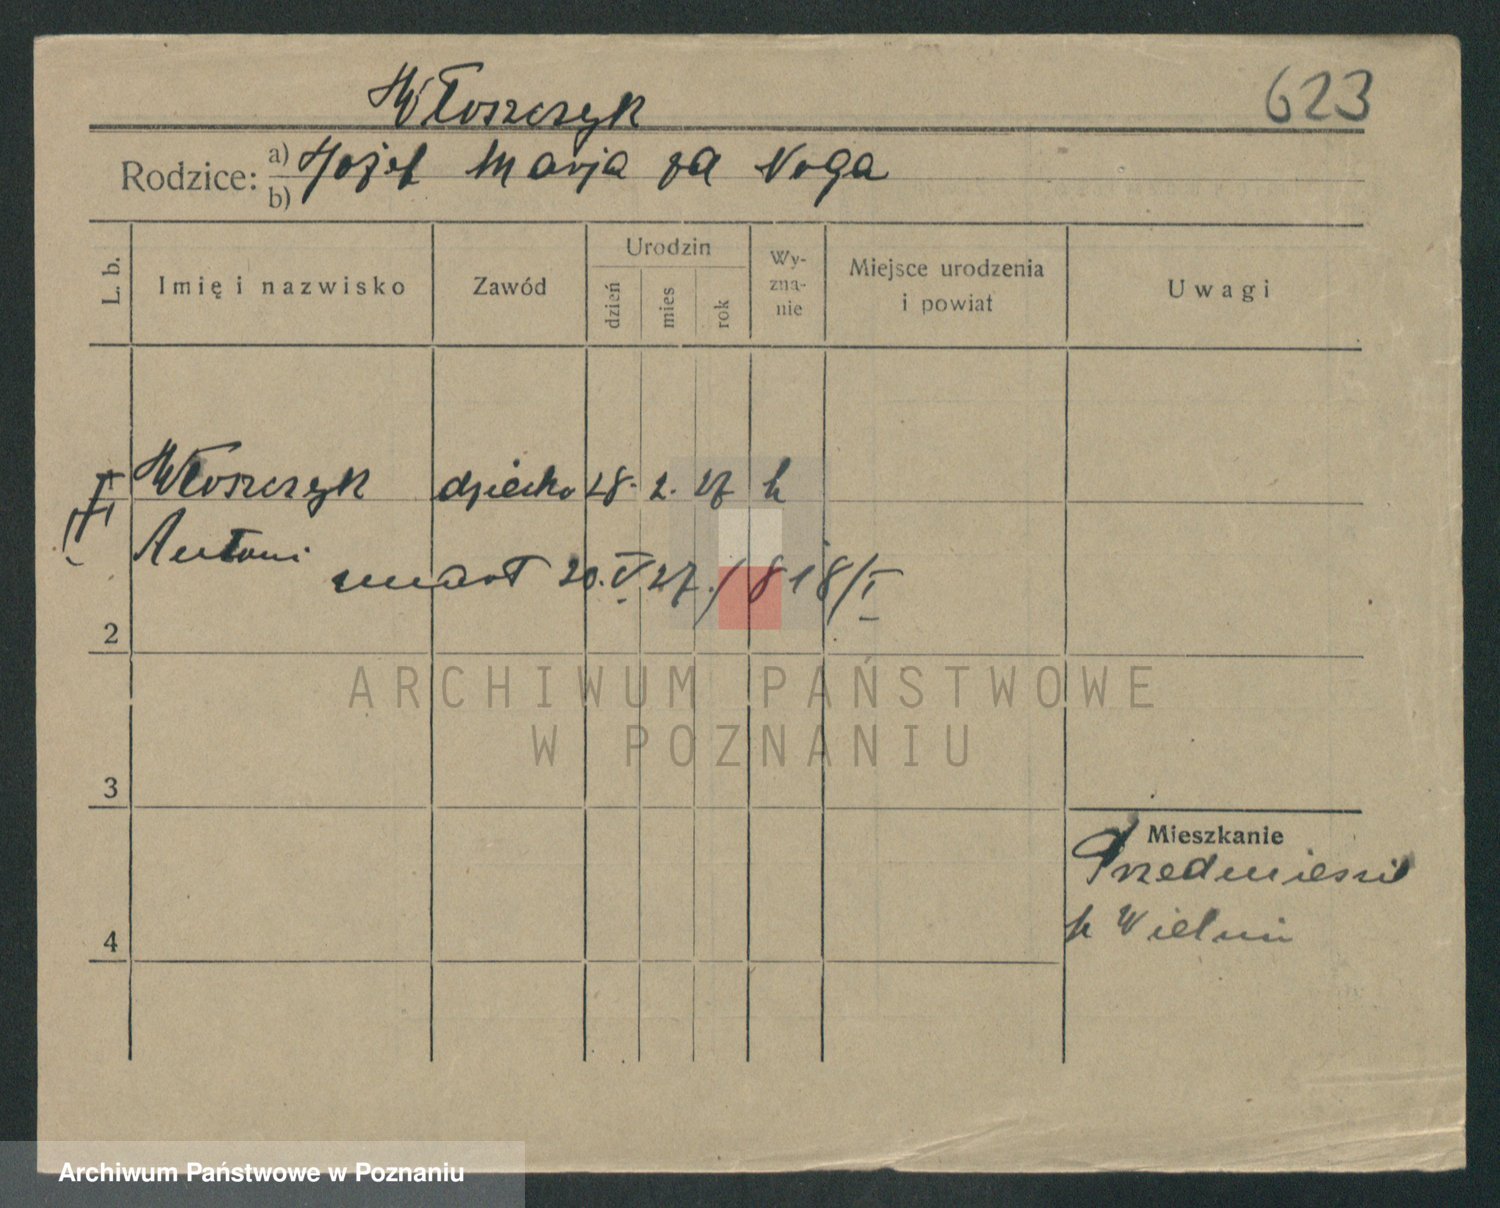 Włoszczyk
623
Rodzice: a) Jozef Marja za Noga
b)
L. b.
Imię i nazwisko
Zawód
Urodzin
dzień
mies
rok
Wy-
zna-
nie
Miejsce urodzenia
i powiat
Uwagi
Włoszczyk dziecko 28. 2. 27 k
Antoni
umarł 20. V 27. / 818/I
2
ARCHIWUM PAŃSTWOWE
W POZNANIU
3
Mieszkanie
Przedmieście
k Wielui
4
Archiwum Państwowe w Poznaniu